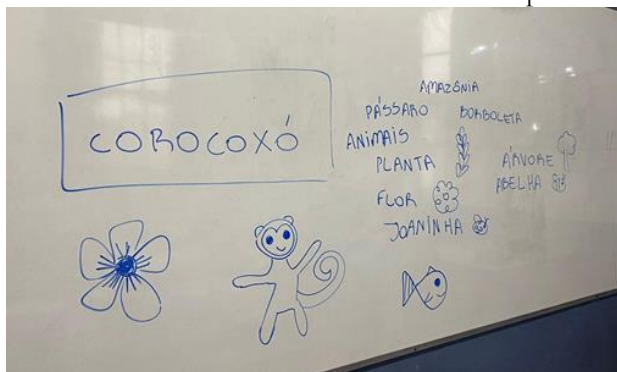 COROCOXÓ
AMAZÔNIA
PÁSSARO BORBOLETA
ANIMAIS
PLANTA
ÁRVORE
ABELHA
FLOR
JOANINHA